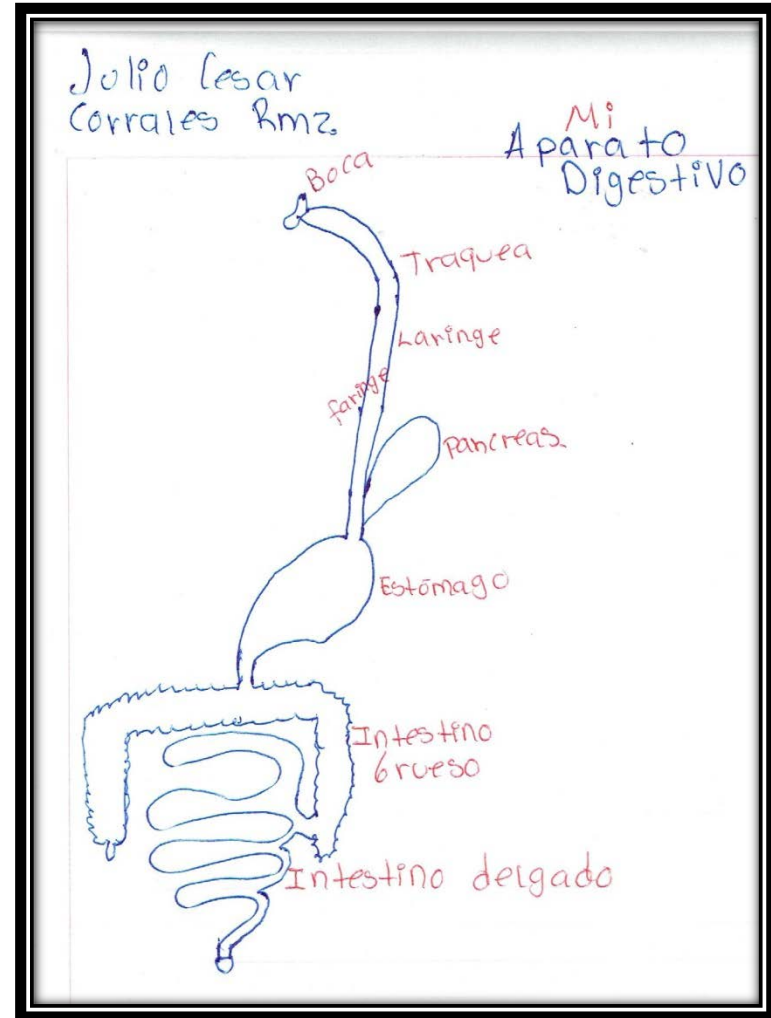 Julio Cesar
Corrales Rmz.
Mi
Aparato
Digestivo
Boca
Traquea
Laringe
faringe
Pancreas.
Estómago
Intestino
Grueso
Intestino delgado